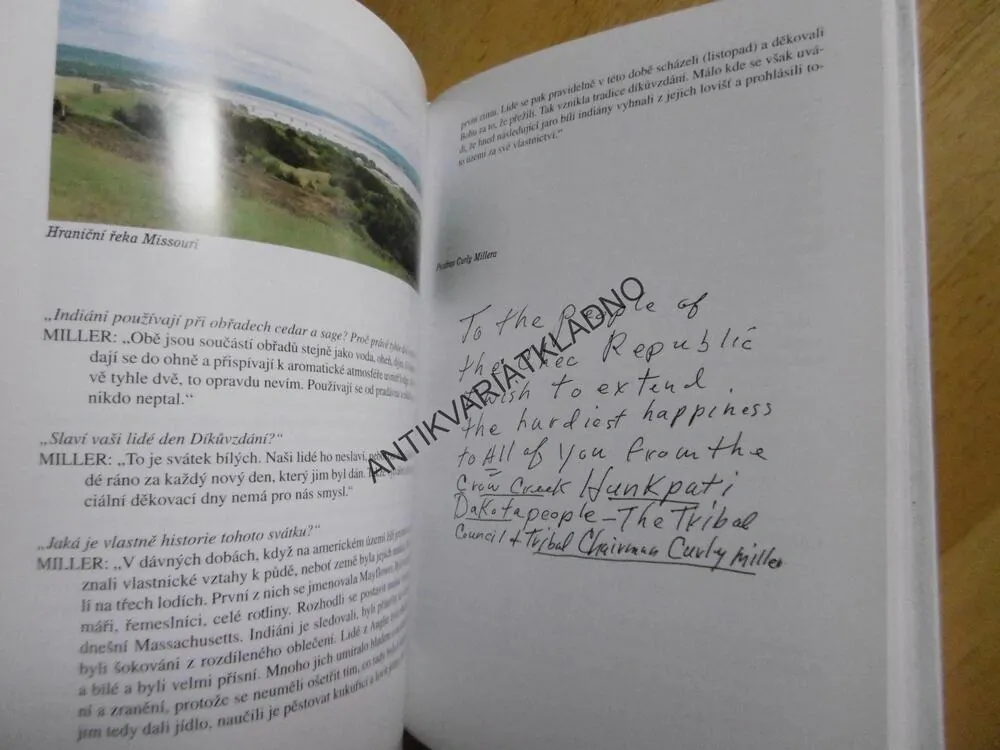 Hraniční řeka Missouri
„Indiáni používají při obřadech cedar a sage? Proč právě tyhle
MILLER: „Obě jsou součástí obřadů stejně jako voda, oheň, dým.
dají se do ohně a přispívají k aromatické atmosféře
vě tyhle dvě, to opravdu nevím. Používají se od
nikdo neptal.“
„Slaví vaši lidé den Díkůvzdání?“
MILLER: „To je svátek bílých. Naši lidé ho neslaví,
dé ráno za každý nový den, který jim byl dán.
ciální děkovací dny nemá pro nás smysl.“
„Jaká je vlastně historie tohoto svátku?“
MILLER: „V dávných dobách, když na americkém území žili
znali vlastnické vztahy k půdě, neboť země byla jejich
lí na třech lodích. První z nich se jmenovala Mayflower.
máři, řemeslníci, celé rodiny. Rozhodli se postavit
dnešní Massachusetts. Indiáni je sledovali, byli
byli šokováni z rozdíleného oblečení. Lidé z Anglie
a bílé a byli velmi přísní. Mnoho jich umíralo hladem
ní a zranění, protože se neuměli ošetřit tím, co
jim tedy dali jídlo, naučili je pěstovat kukuřici a
první zimu. Lidé se pak pravidelně v této době scházeli (listopad) a děkovali
Bohu za to, že přežili. Tak vznikla tradice díkůvzdání. Málo kde se však uvá-
dí, že hned následující jaro bílí indiány vyhnali z jejich lovišť a prohlásili to-
to území za své vlastnictví.“
Pozdrav Curly Millera
To the People of
the Chec Republic
I wish to extend
the hardiest happiness
to All of You from the
Crow Creek Hunkpati
Dakota people – The Tribal
Council & Tribal Chairman Curly Miller
ANTIKVARIÁTKLADNO